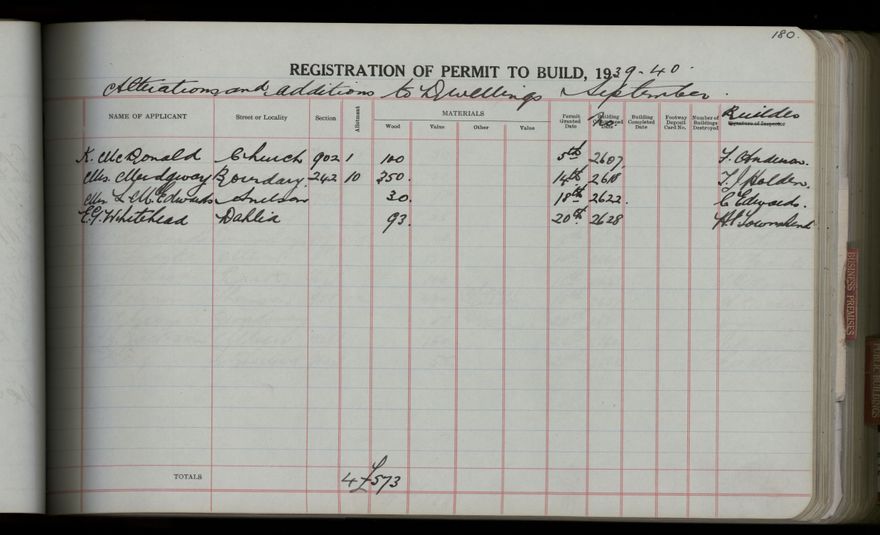 180.
REGISTRATION OF PERMIT TO BUILD, 1939-40.
Alterations and additions to Dwellings September.
NAME OF APPLICANT Street or Locality Section Allotment MATERIALS Wood Value Other Value Permit Granted Date Building Date No Building Completed Date Footway Deposit Card No. Number of Buildings Destroyed Signature of Inspector Builder
K. McDonald Church 902 1 100 5th 2607. F. Anderson.
Mrs. Mudgway Boundary 242 10 350. 14th 2618 T. J. Holden.
Mrs. L. M. Edwards 30. 18th 2622. C Edwards.
E. G. Whitehead Dahlia 93. 20th 2628 Townshend
TOTALS 4 £573
BUSINESS PREMISES
PUBLIC BUILDINGS